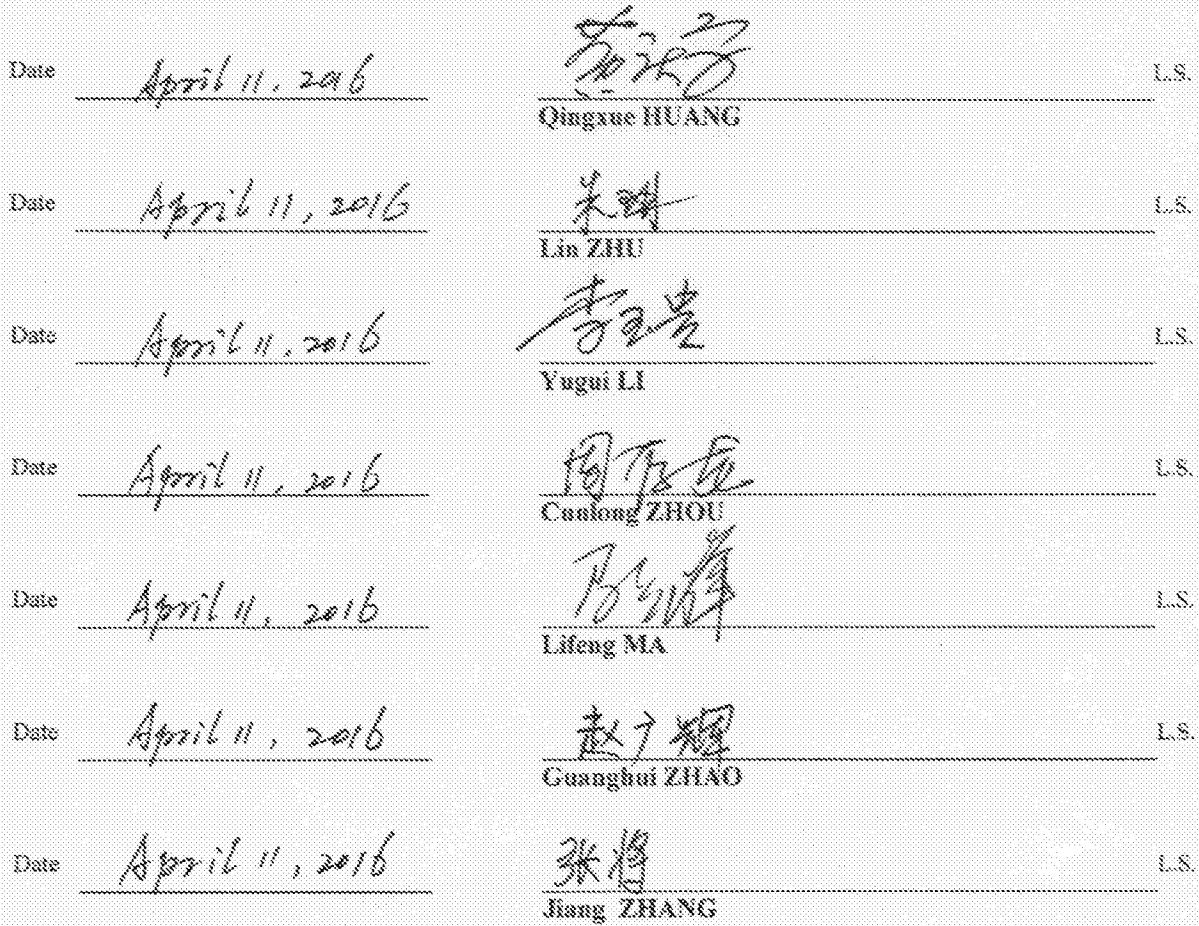 Date April 11, 2016 黄庆学 L.S.
Qingxue HUANG
Date April 11, 2016 朱琳 L.S.
Lin ZHU
Date April 11, 2016 李玉贵 L.S.
Yugui LI
Date April 11, 2016 周存龙 L.S.
Cunlong ZHOU
Date April 11, 2016 L.S.
Lifeng MA
Date April 11, 2016 赵广辉 L.S.
Guanghui ZHAO
Date April 11, 2016 张将 L.S.
Jiang ZHANG